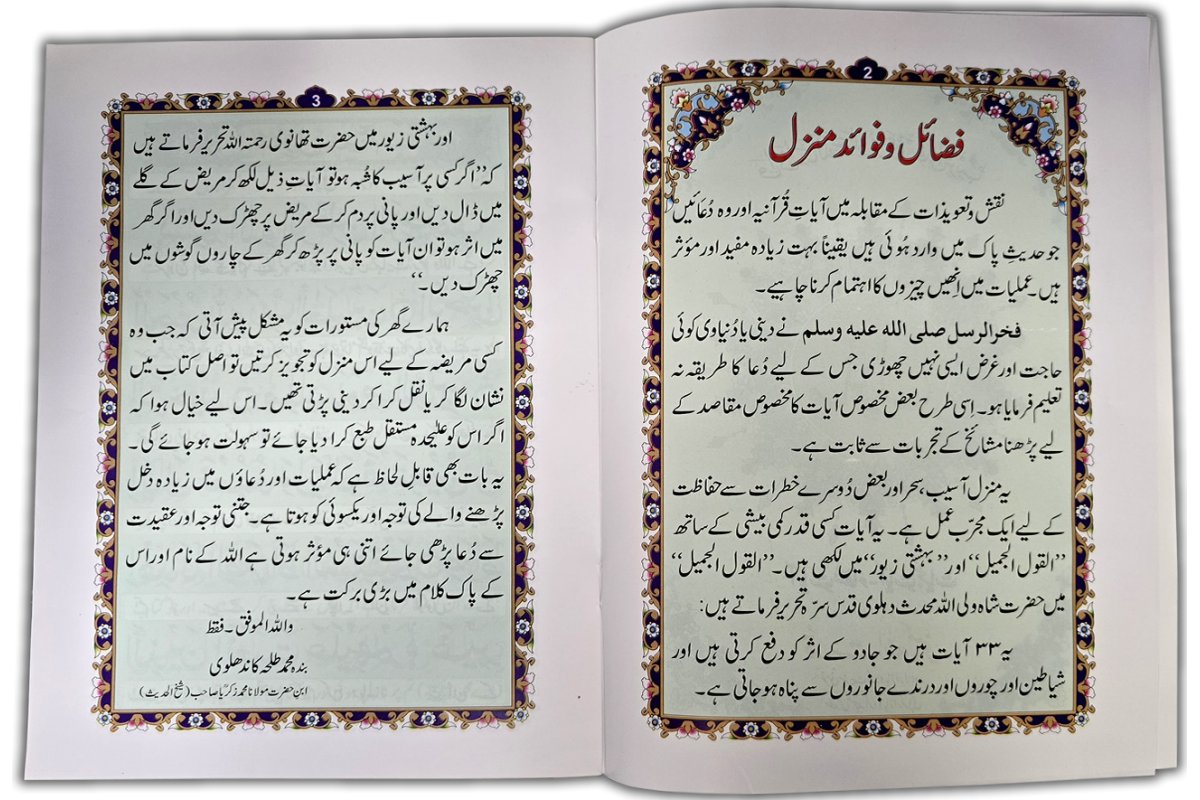 2
فضائل و فوائد منزل
نقش و تعویذات کے مقابلہ میں آیاتِ قُرآنیہ اور وہ دُعائیں
جو حدیثِ پاک میں وارد ہُوئی ہیں یقیناً بہت زیادہ مفید اور مؤثر
ہیں۔ عملیات میں اِنھیں چیزوں کا اہتمام کرنا چاہیے۔
فخر الرسل صلی الله علیه وسلم نے دینی یا دُنیاوی کوئی
حاجت اور غرض ایسی نہیں چھوڑی جس کے لیے دُعا کا طریقہ نہ
تعلیم فرمایا ہو۔ اِسی طرح بعض مخصوص آیات کا مخصوص مقاصد کے
لیے پڑھنا مشائخ کے تجربات سے ثابت ہے۔
یہ منزل آسیب، سحر اور بعض دُوسرے خطرات سے حفاظت
کے لیے ایک مجرّب عمل ہے۔ یہ آیات کسی قدر کمی بیشی کے ساتھ
”القول الجمیل“ اور ”بہشتی زیور“ میں لکھی ہیں۔ ”القول الجمیل“
میں حضرت شاہ ولی اللہ محدث دہلوی قدس سرّہ تحریر فرماتے ہیں:
یہ ۳۳ آیات ہیں جو جادو کے اثر کو دفع کرتی ہیں اور
شیاطین اور چوروں اور درندے جانوروں سے پناہ ہو جاتی ہے۔
3
اور بہشتی زیور میں حضرت تھانوی رحمتہ اللہ تحریر فرماتے ہیں
کہ ”اگر کسی پر آسیب کا شُبہ ہو تو آیاتِ ذیل لکھ کر مریض کے گلے
میں ڈال دیں اور پانی پر دم کر کے مریض پر چھڑک دیں اور اگر گھر
میں اثر ہو تو ان آیات کو پانی پر پڑھ کر گھر کے چاروں گوشوں میں
چھڑک دیں۔“
ہمارے گھر کی مستورات کو یہ مشکل پیش آتی کہ جب وہ
کسی مریضہ کے لیے اس منزل کو تجویز کرتیں تو اصل کتاب میں
نشان لگا کر یا نقل کرا کر دینی پڑتی تھیں۔ اس لیے خیال ہوا کہ
اگر اس کو علیٰحدہ مستقل طبع کرا دیا جائے تو سہولت ہو جائے گی۔
یہ بات بھی قابلِ لحاظ ہے کہ عملیات اور دُعاؤں میں زیادہ دخل
پڑھنے والے کی توجہ اور یکسوئی کو ہوتا ہے۔ جتنی توجہ اور عقیدت
سے دُعا پڑھی جائے اتنی ہی مؤثر ہوتی ہے اللہ کے نام اور اس
کے پاک کلام میں بڑی برکت ہے۔
واللہ الموفق۔ فقط
بندہ محمد طلحہ کاندھلوی
ابن حضرت مولانا محمد زکریا صاحب (شیخ الحدیث)